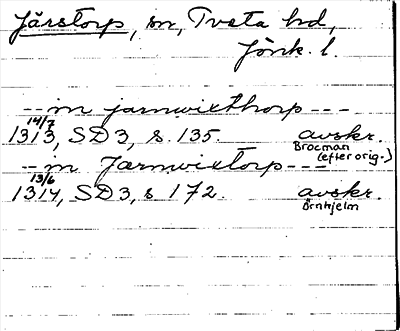 Järstorp, sn, Tveta hd,
Jönk. l.
-- in jarnwixthorp ---
14/7
1313, SD 3, s. 135. avskr.
Brocman
(efter orig.)
-- in Jærnvixtorp ---
13/6
1314, SD 3, s 172. avskr.
Örnhjelm